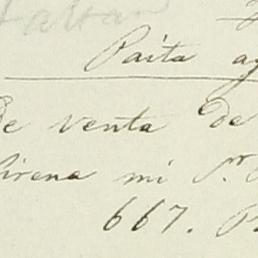 Paita ag
de venta de
Sirena mi Sr.
667. P